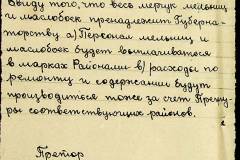 Ввиду того, что весь мерчук мельниц
и маслобоек принадлежит Губерна-
торству а) Персонал мельниц и
маслобоек будет выплачиваться
в марках Районами в) расходы по
ремонту и содержании будут
производиться тоже за счет Прету-
ры соответствующих районов.
Претор